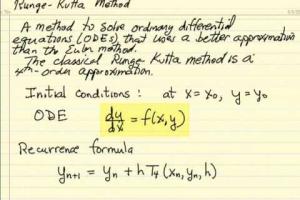 Runge-Kutta Method
A method to solve ordinary differential
equations (ODEs) that uses a better approximation
than the Euler method.
The classical Runge-Kutta method is a
4th-order approximation.
Initial conditions : at x = x₀, y = y₀
ODE dy/dx = f(x,y)
Recurrence formula
yₙ₊₁ = yₙ + h T₄ (xₙ, yₙ, h)